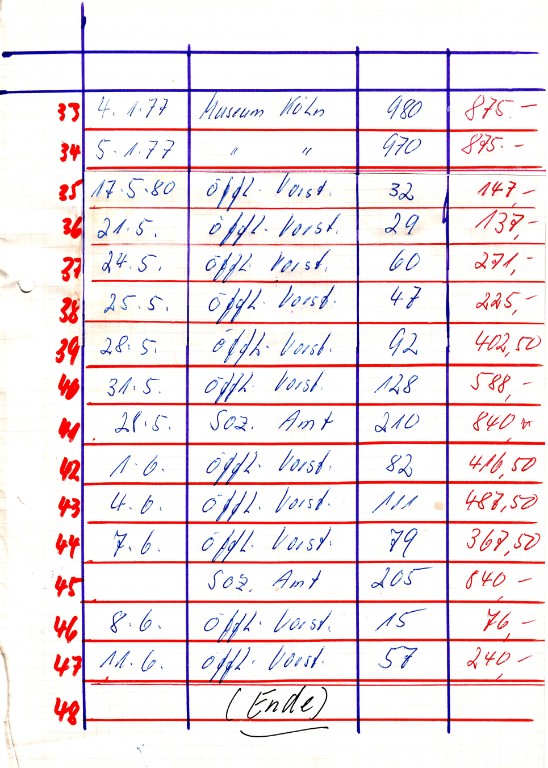 33 4.1.77 Museum Köln 980 875.-
34 5.1.77 " " 970 875.-
35 17.5.80 öffl. Vorst. 32 147,-
36 21.5. öffl. Vorst. 29 137,-
37 24.5. öffl. Vorst. 60 271,-
38 25.5. öffl. Vorst. 47 225,-
39 28.5. öffl. Vorst. 92 402,50
40 31.5. öffl. Vorst. 128 588,-
41 28.5. Soz. Amt 210 840,-
42 1.6. öffl. Vorst. 82 416,50
43 4.6. öffl. Vorst. 111 487,50
44 7.6. öffl. Vorst. 79 367,50
45 Soz. Amt 205 840,-
46 8.6. öffl. Vorst. 15 76,-
47 11.6. öffl. Vorst. 57 240,-
48 (Ende)